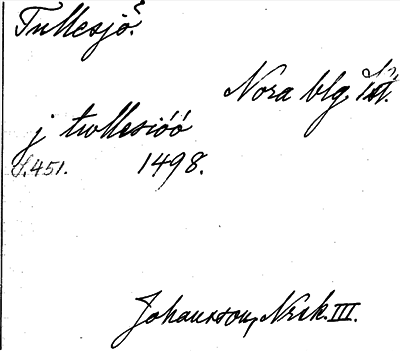 Tullesjö?
Nora blg,
j twllesióó
S.451. 1498.
Johansson, Nrk. III.